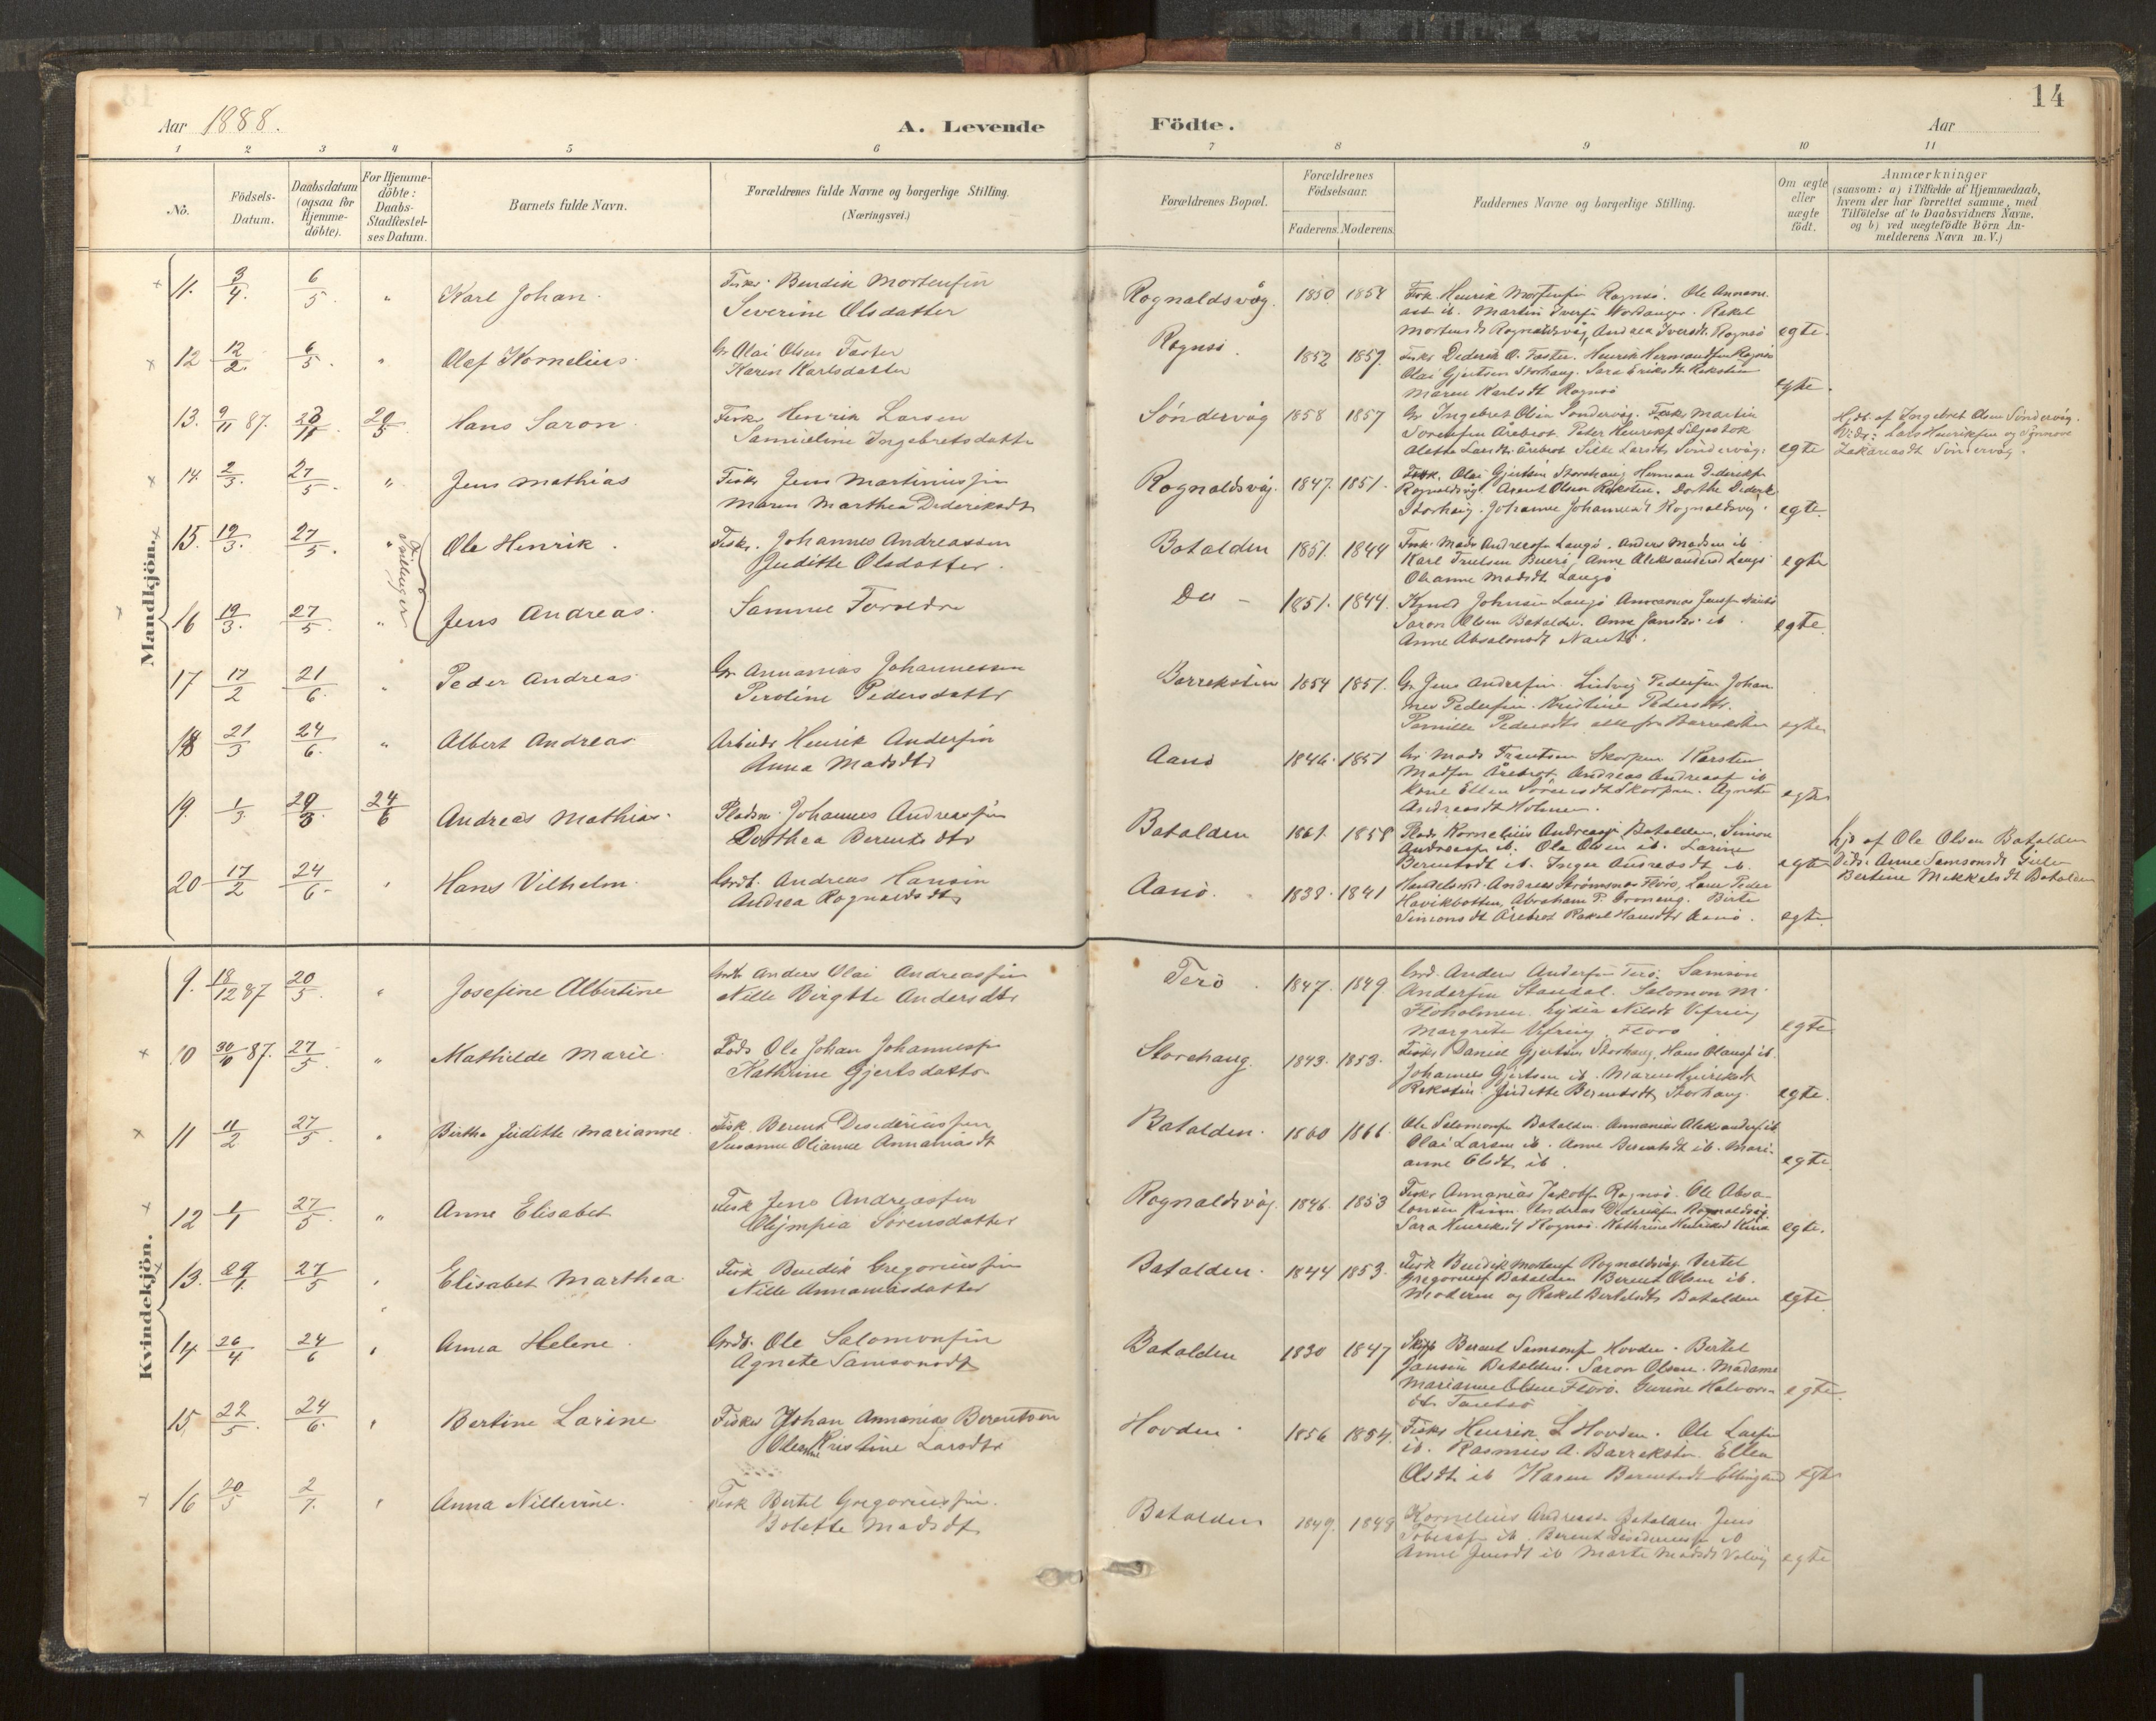 14
Aar 1888.
A. Levende
Födte.
Aar
1 2 3 4 5 6 7 8 9 10 11
No.
Födsels-
Datum.
Daabsdatum
(ogsaa for
Hjemme-
döbte).
For Hjemme-
döbte:
Daabs-
Stadfæstel-
ses Datum.
Barnets fulde Navn.
Forældrenes fulde Navne og borgerlige Stilling.
(Næringsvei.)
Forældrenes Bopæl.
Forældrenes
Födselsaar.
Faderens. Moderens.
Faddernes Navne og borgerlige Stilling.
Om ægte
eller
uægte
födt.
Anmærkninger
(saasom: a) i Tilfælde af Hjemmedaab,
hvem der har forrettet samme, med
Tilföielse af to Daabsvidners Navne.
og b) ved uægtefödte Börn An-
melderens Navn m. V.)
Mandkjön.
11. 3/4. 6/5. " Karl Johan. Fisker Bendik Mortensen
Severine Olsdatter
Rognaldsvåg. 1850 1854 Fisk. Henrik Mortensen Rognsö. Ole
ib. Martin Rakel
Rognaldsvåg, Andrea Iversdt. Rognsö egte.
12 12/2. 6/5. " Olaf Kornelius. Gr Olai Olsen Taster
Karen Karlsdatter
Rognsö. 1852 1859. Fisker Diderik O. Henrik Hermandsen Rognsö
Olai Gjertsen Storhaug. Sara Eriksdt Rekstin
Maren Karlsdt Rognsö egte.
13. 9/11 87. 20/5 Hans Saron. Fisker Henrik Larsen
Samueline Ingebretsdatter
Söndervåg 1858 1857 Gr Ingebret Olsen Söndervåg. Fisker Martin
Sorensen Årebrot. Peter Henriks
Olette Larsdt. Årebrot Sille Larsdt Söndervåg. egte
Hjdt. af Ingebret Olsen Söndervåg.
Vidn: Lars Henriksen og Synnove
Zakariasdt Söndervåg.
14. 2/3. 27/5. " Jens Mathias Fisker Jens Martinussen
Maren Marthea Dideriksdt
Rognaldsvåg. 1847. 1851. Fisk. Olai Gjertsen Storehaug Herman Dideriksen
Rognaldsvåg. Olsen Reksten. Dorthe
Storhaug. Johanne Rognaldsvåg. egte.
15. 19/3. 27/5. " Ole Henrik. Fisker. Johannes Andreassen
Juditte Olsdatter.
Tvillinger
Batalden 1851. 1844 Fisk. Mads Andreassen Langö. Anders Madsen ib
Karl Truelsen Anne Aleksandersd Langö
Oleanne Madsdt Langö egte
16 19/3. 27/5. " Jens Andreas. Samme Foreldre
Do - 1851. 1844. Knud Johnsen Langö Jensen
Saron Olsen Batalden. Anne Jansdtr ib.
Anne Absalonsdt egte.
17 17/2 21/6. " Peder Andreas. Gr Annanias Johannessen
Peroline Pedersdatter
Barrekstin 1854 1851. Gr Jens Andersen. Ludvig Pedersen Johan
nes Pedersen. Kristine Pedersdtr.
Pernille Pedersdtr alle fra Barreksten egte
18 21/3 24/6. " Albert Andreas Arbeider Henrik Andersen
Anna Madsdtr
Aanö 1846. 1851 Gr Mads Frantsen Skorpen Karsten
Madsen Årebrot Andreas Andreass ib
Kone Ellen Sorensdt Skorpen. Agnete
Andreasdt Holmen. egte
19. 1/3 29/3 24/6 Andreas Mathias. Pladsm. Johannes Andreassen
Dorthea Berentsdtr
Batalden 1861. 1858 Plads Kornelius Andreass Batalden, Simon
Andreass ib. Ole Olsen ib. Larine
Berentsdt ib. Inger Andreasdt ib. egte
hjd af Ole Olsen Batalden
Vidn. Anne Samsonsdt
Bertine Mikkelsdt Batalden
20 17/2 24/6 Hans Vilhelm. Grdb. Andreas Hansen
Andrea Rognaldsdtr
Aanö. 1838. 1841 Andreas Strömsnes Florö, Peder
Havikbotten, Abraham P. Birte
Simonsdt Årebrot Rakel Hansdtr Aanö. egte.
Kvindekjön.
9. 18/12 87 20/5. " Josefine Albertine Grdb Anders Olai Andreassen
Nille Birgtte Andersdtr
Terö. 1847. 1849. Grd. Anders Andersen Terö. Samson
Andersen Standal. Salomon M.
Floholmen. Lydia Nilsdt Vefring
Margrete Vefring. Florö egte
10 30/10 87. 27/5. " Mathilde Marie. Ole Johan Johannessen
Kathrine Gjertsdatter
Storehaug. 1843. 1853. Fisker Daniel Gjertsen Storhaug. Hans Olausen ib.
Johannes Gjertsen ib. Maren Henriksdt
Rekstin. Juditte Berentsdt Storhaug. egte.
11 11/2 27/5. " Birthe Juditte Marianne. Fisk. Berent Desideriussen
Susanne Oleanne Annaniasdt
Batalden. 1860 1866. Ole Salomonsen Batalden. Annanias Aleksanders ib
Olai Larsen ib. Anne Berentsdt ib. Mari-
anne Olsdt ib. egte
12 1/1 27/5. " Anne Elisabet Fisk Jens Andreassen
Olympia Sörensdatter
Rognaldsvåg. 1846. 1853 Fisker Annanias Jakobsen Rognsö. Ole Absa-
lonsen Kinn. Andreas Dideriksen Rognaldsvåg.
Sara Henriksdt Rognsö. Kathrine Henriksd Kinn egte.
13. 29/1. 27/5 Elisabet Marthea. Fisk Bendik Gregoriussen
Nille Annaniasdatter
Batalden. 1844 1853. Fisk Bendik Mortens Rognaldsvåg. Bertel
Gregoriuss Batalden Berent Olsen ib.
Moderen og Rakel Bertelsdtr Batalden egte
14 26/4 24/6 Anna Helene. Grdb. Ole Salomonsen
Agnete Samsonsdt
Batalden 1830 1847 Berent Samsonsen Hovden. Bertel
Jansen Batalden. Saron Olsen. Madame
Marianne Olsen Florö. Gurine Halvors-
dt egte.
15, 22/5. 24/6. Bertine Larine Fisker Johan Annanias Berentsen
Oleanne Kristine Larsdtr
Hovden. 1856 1854. Fisker Henrik L Hovden. Ole Larsen
ib. Rasmus A. Barreksten. Ellen
Olsdt ib Karen Berentsdt egte
16 20/5 2/7. Anna Nillevine. Fisk Bertel Gregoriussen.
Bolette Madsdt
Batalden 1849. 1849 Kornelius Andreass Batalden Jens
Tobiass ib. Berent Desideriuss ib
Anne Jensdt ib Marte Madsdt egte